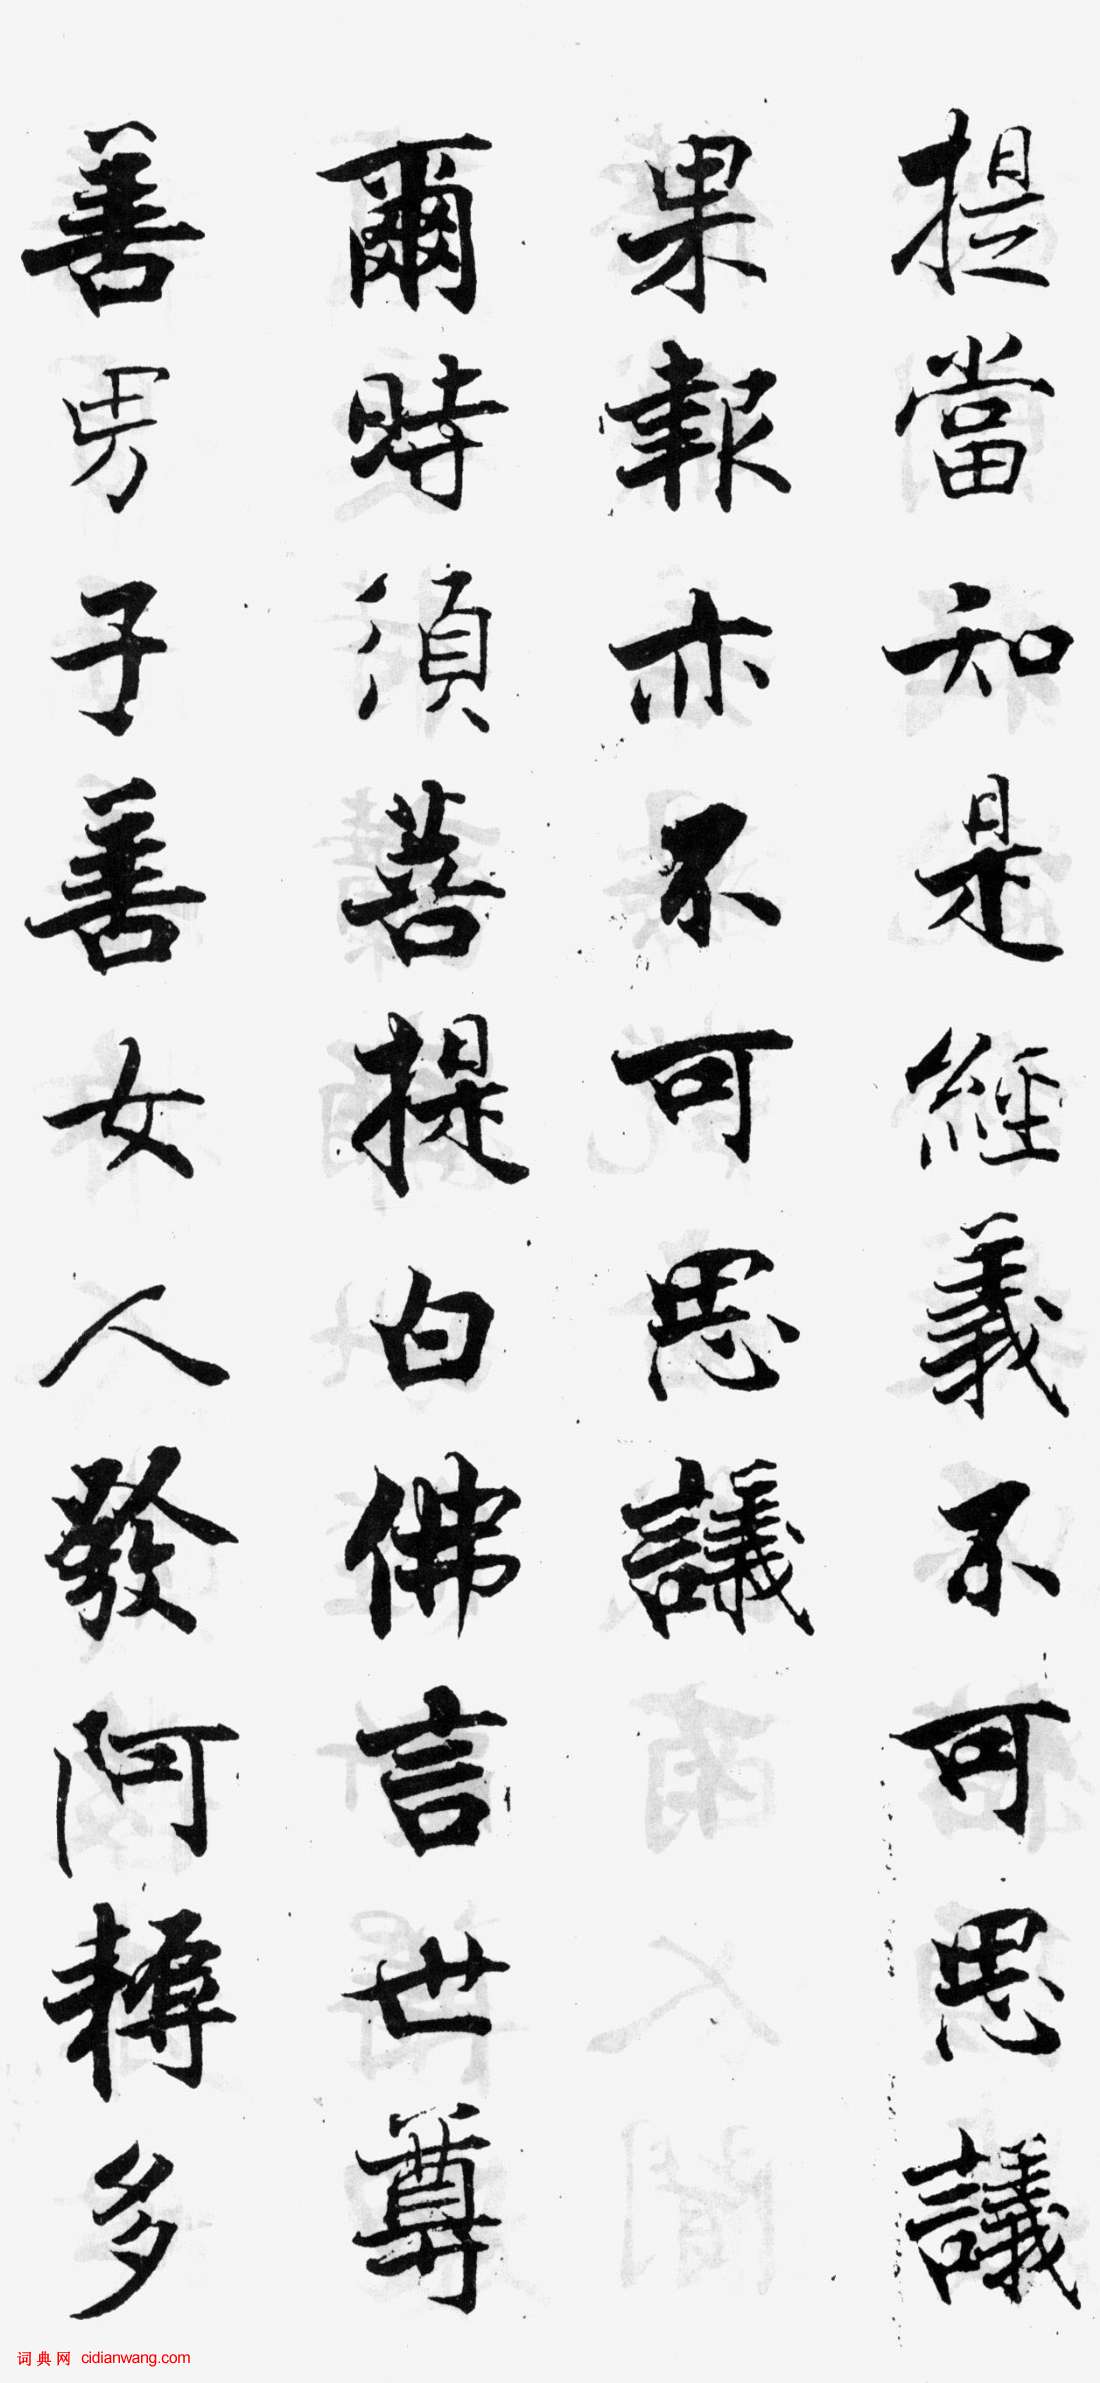 提當知是經義不可思議
果報亦不可思議
爾時須菩提白佛言世尊
善男子善女人發阿耨多
词典网 cidianwang.com